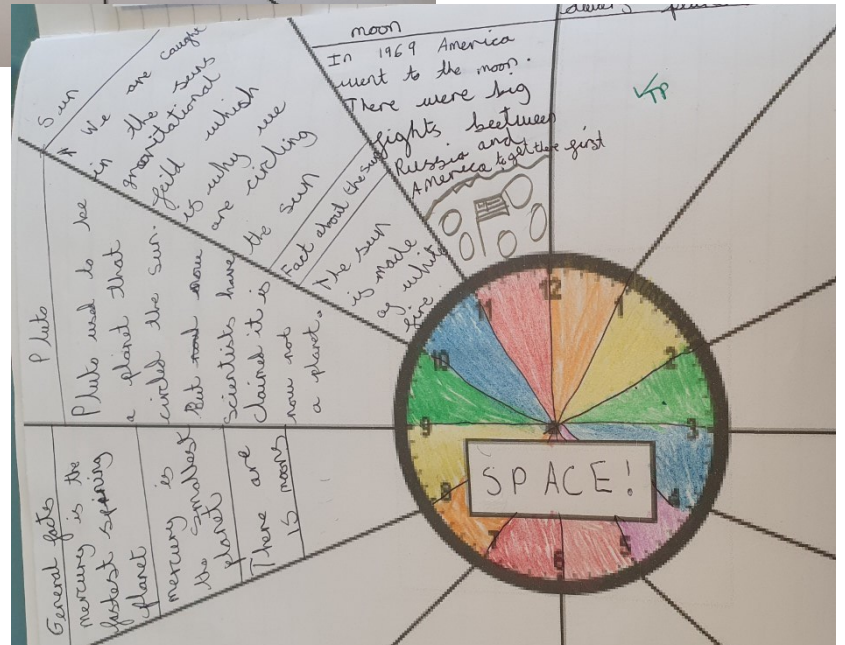 moon
In 1969 America
went to the moon.
There were big
fights beetween
Russia and
America to get there first
Sun
We are caught
in the suns
gravitational
feild which
is why we
are circling
the sun
Fact about the sun
The sun
is made
of white
fire.
Pluto
Pluto used to be
a planet that
circled the sun.
But now
Scientists have
claimed it is
now not
a planet.
General facts
mercury is the
fastest spining
planet
mercury is
the smallest
planet
There are
15 moons
TP
12
1
2
3
4
5
6
7
8
9
10
11
SPACE!